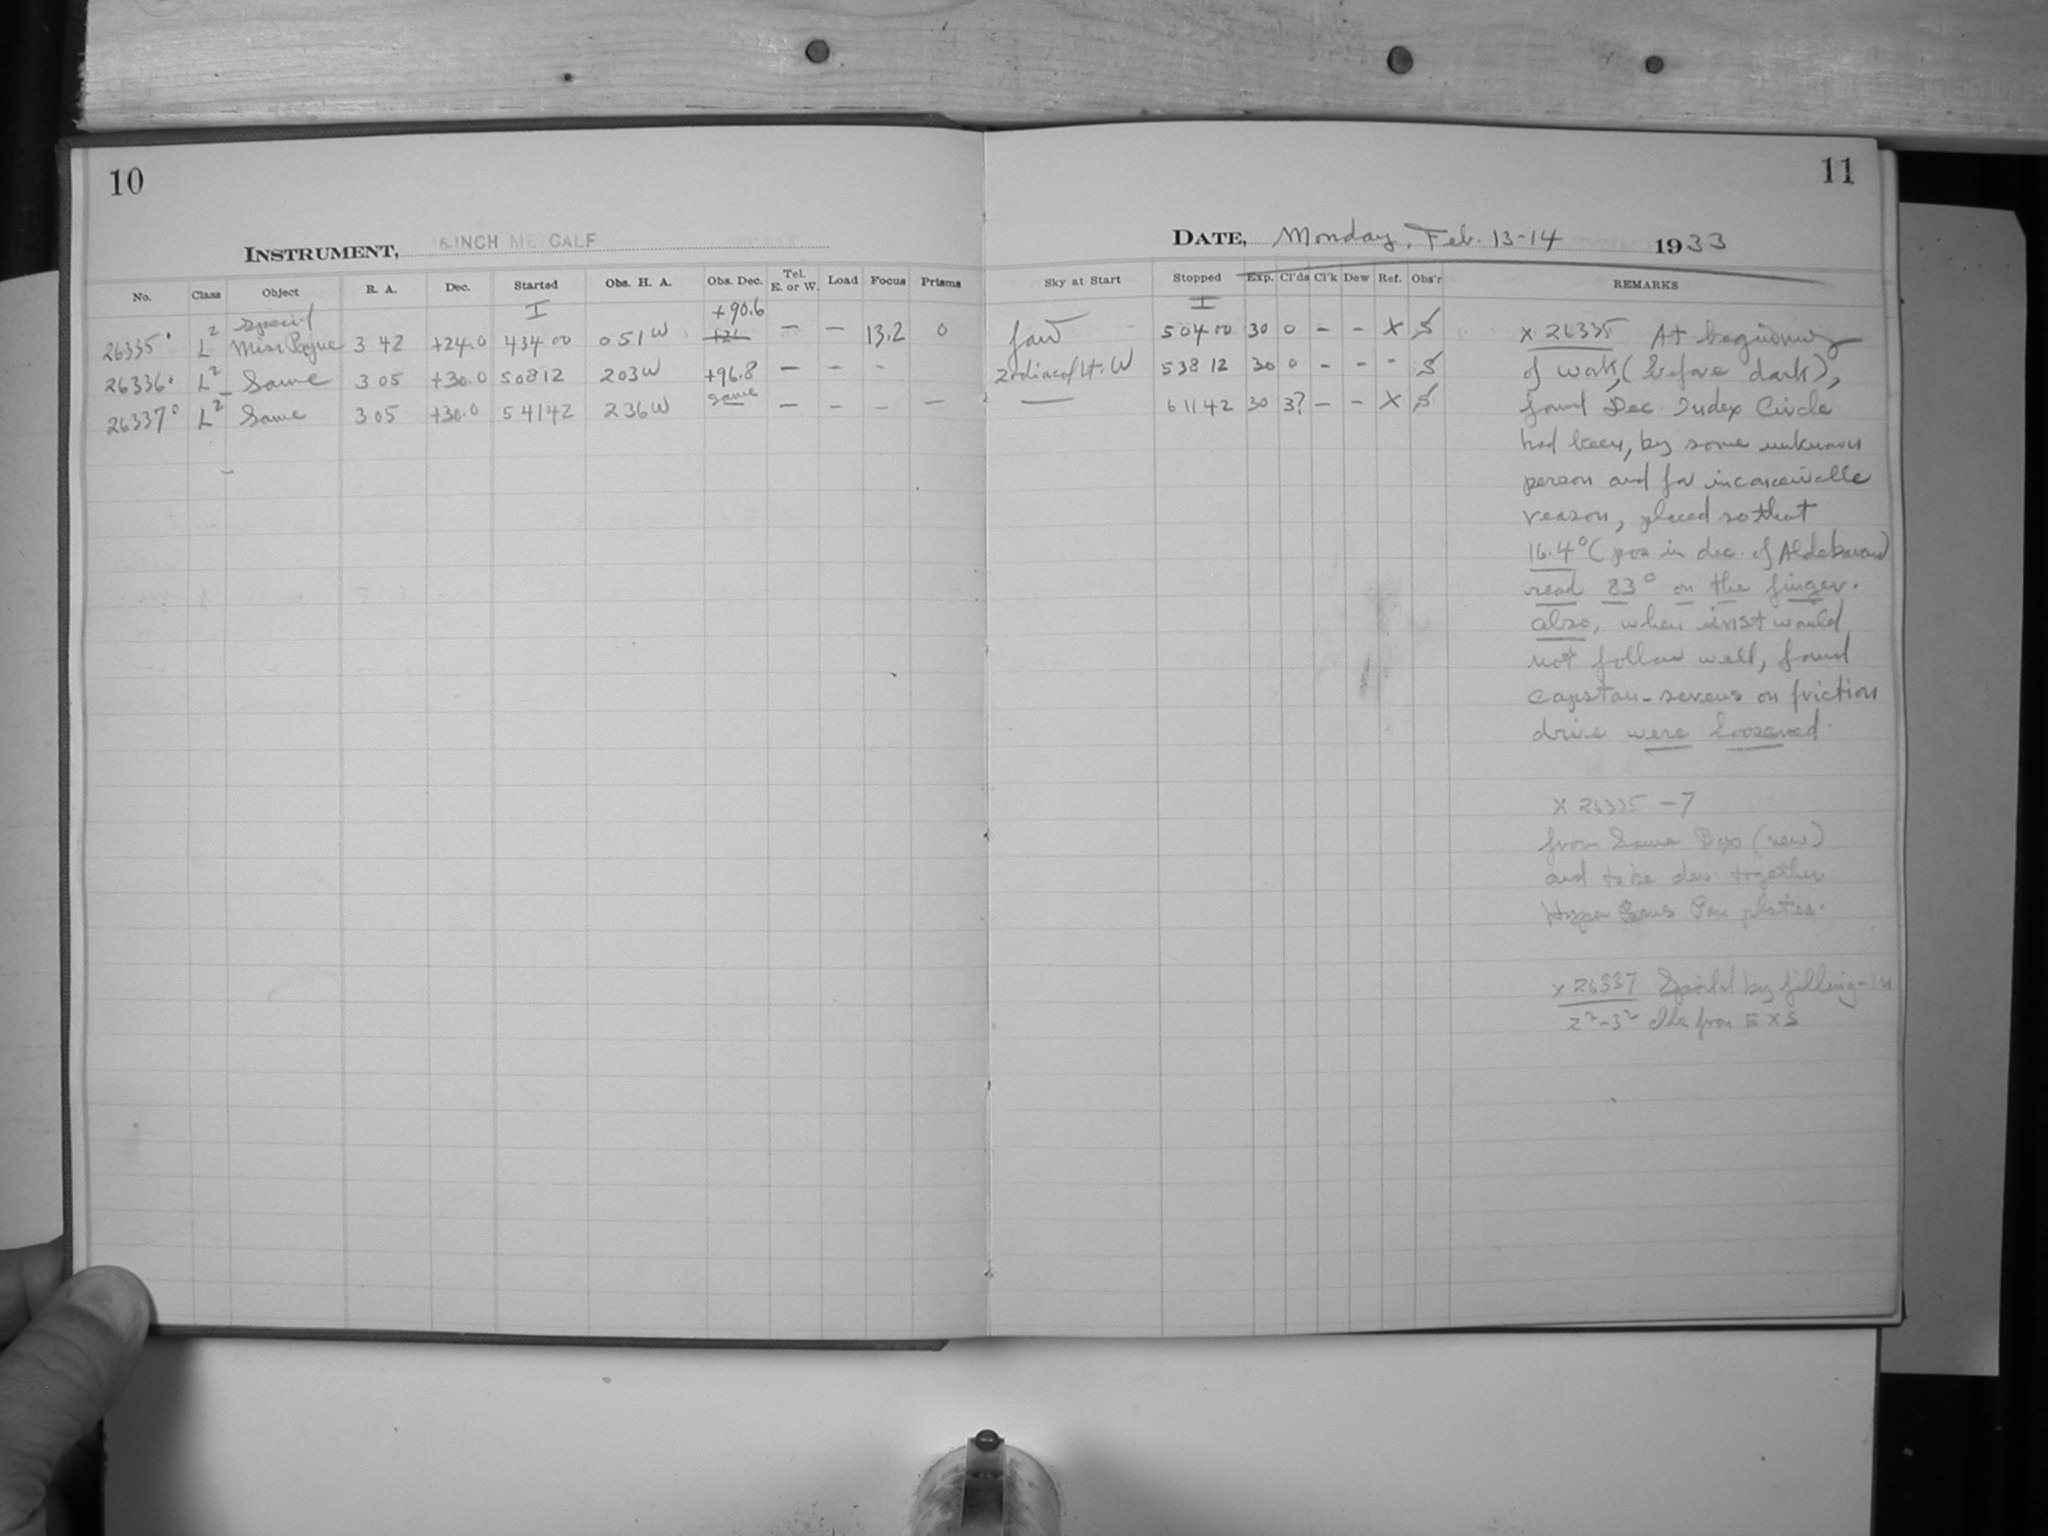 10
11
INSTRUMENT, 16-INCH METCALF
DATE, Monday, Feb. 13-14 1933
No. Class Object R. A. Dec. Started Obs. H. A. Obs. Dec. Tel. E. or W. Load Focus Prisms Sky at Start Stopped Exp. Cl'ds Cl'k Dew Ref. Obs'r REMARKS
I +90.6 I
26335 L2 Special Miss Payne 3 42 +24.0 4 34 00 0 51 W +24 — — 13.2 0 fair 5 04 00 30 0 – – X S
26336 L2 Same 3 05 +30.0 5 08 12 2 03 W +96.8 — – – Zodiacal Lt. W 5 38 12 30 0 – – - S
26337 L2 Same 3 05 +30.0 5 41 42 2 36 W same – – – — — 6 11 42 30 3? – – X S
X 26335 At beginning
of work, (before dark),
found Dec. Index Circle
had been, by some unknown
person and for inconceivable
reason, placed so that
16.4° (pos in dec. of Aldebaran)
read 83° on the finger.
also, when inst would
not follow well, found
capstan-screws on friction
drive were loosened.
X 26335 – 7
from Same Box (new)
and to be dev. together
Hyper Sens Pan plates.
X 26337 Spoiled by filling-in
2²-3² from E X S